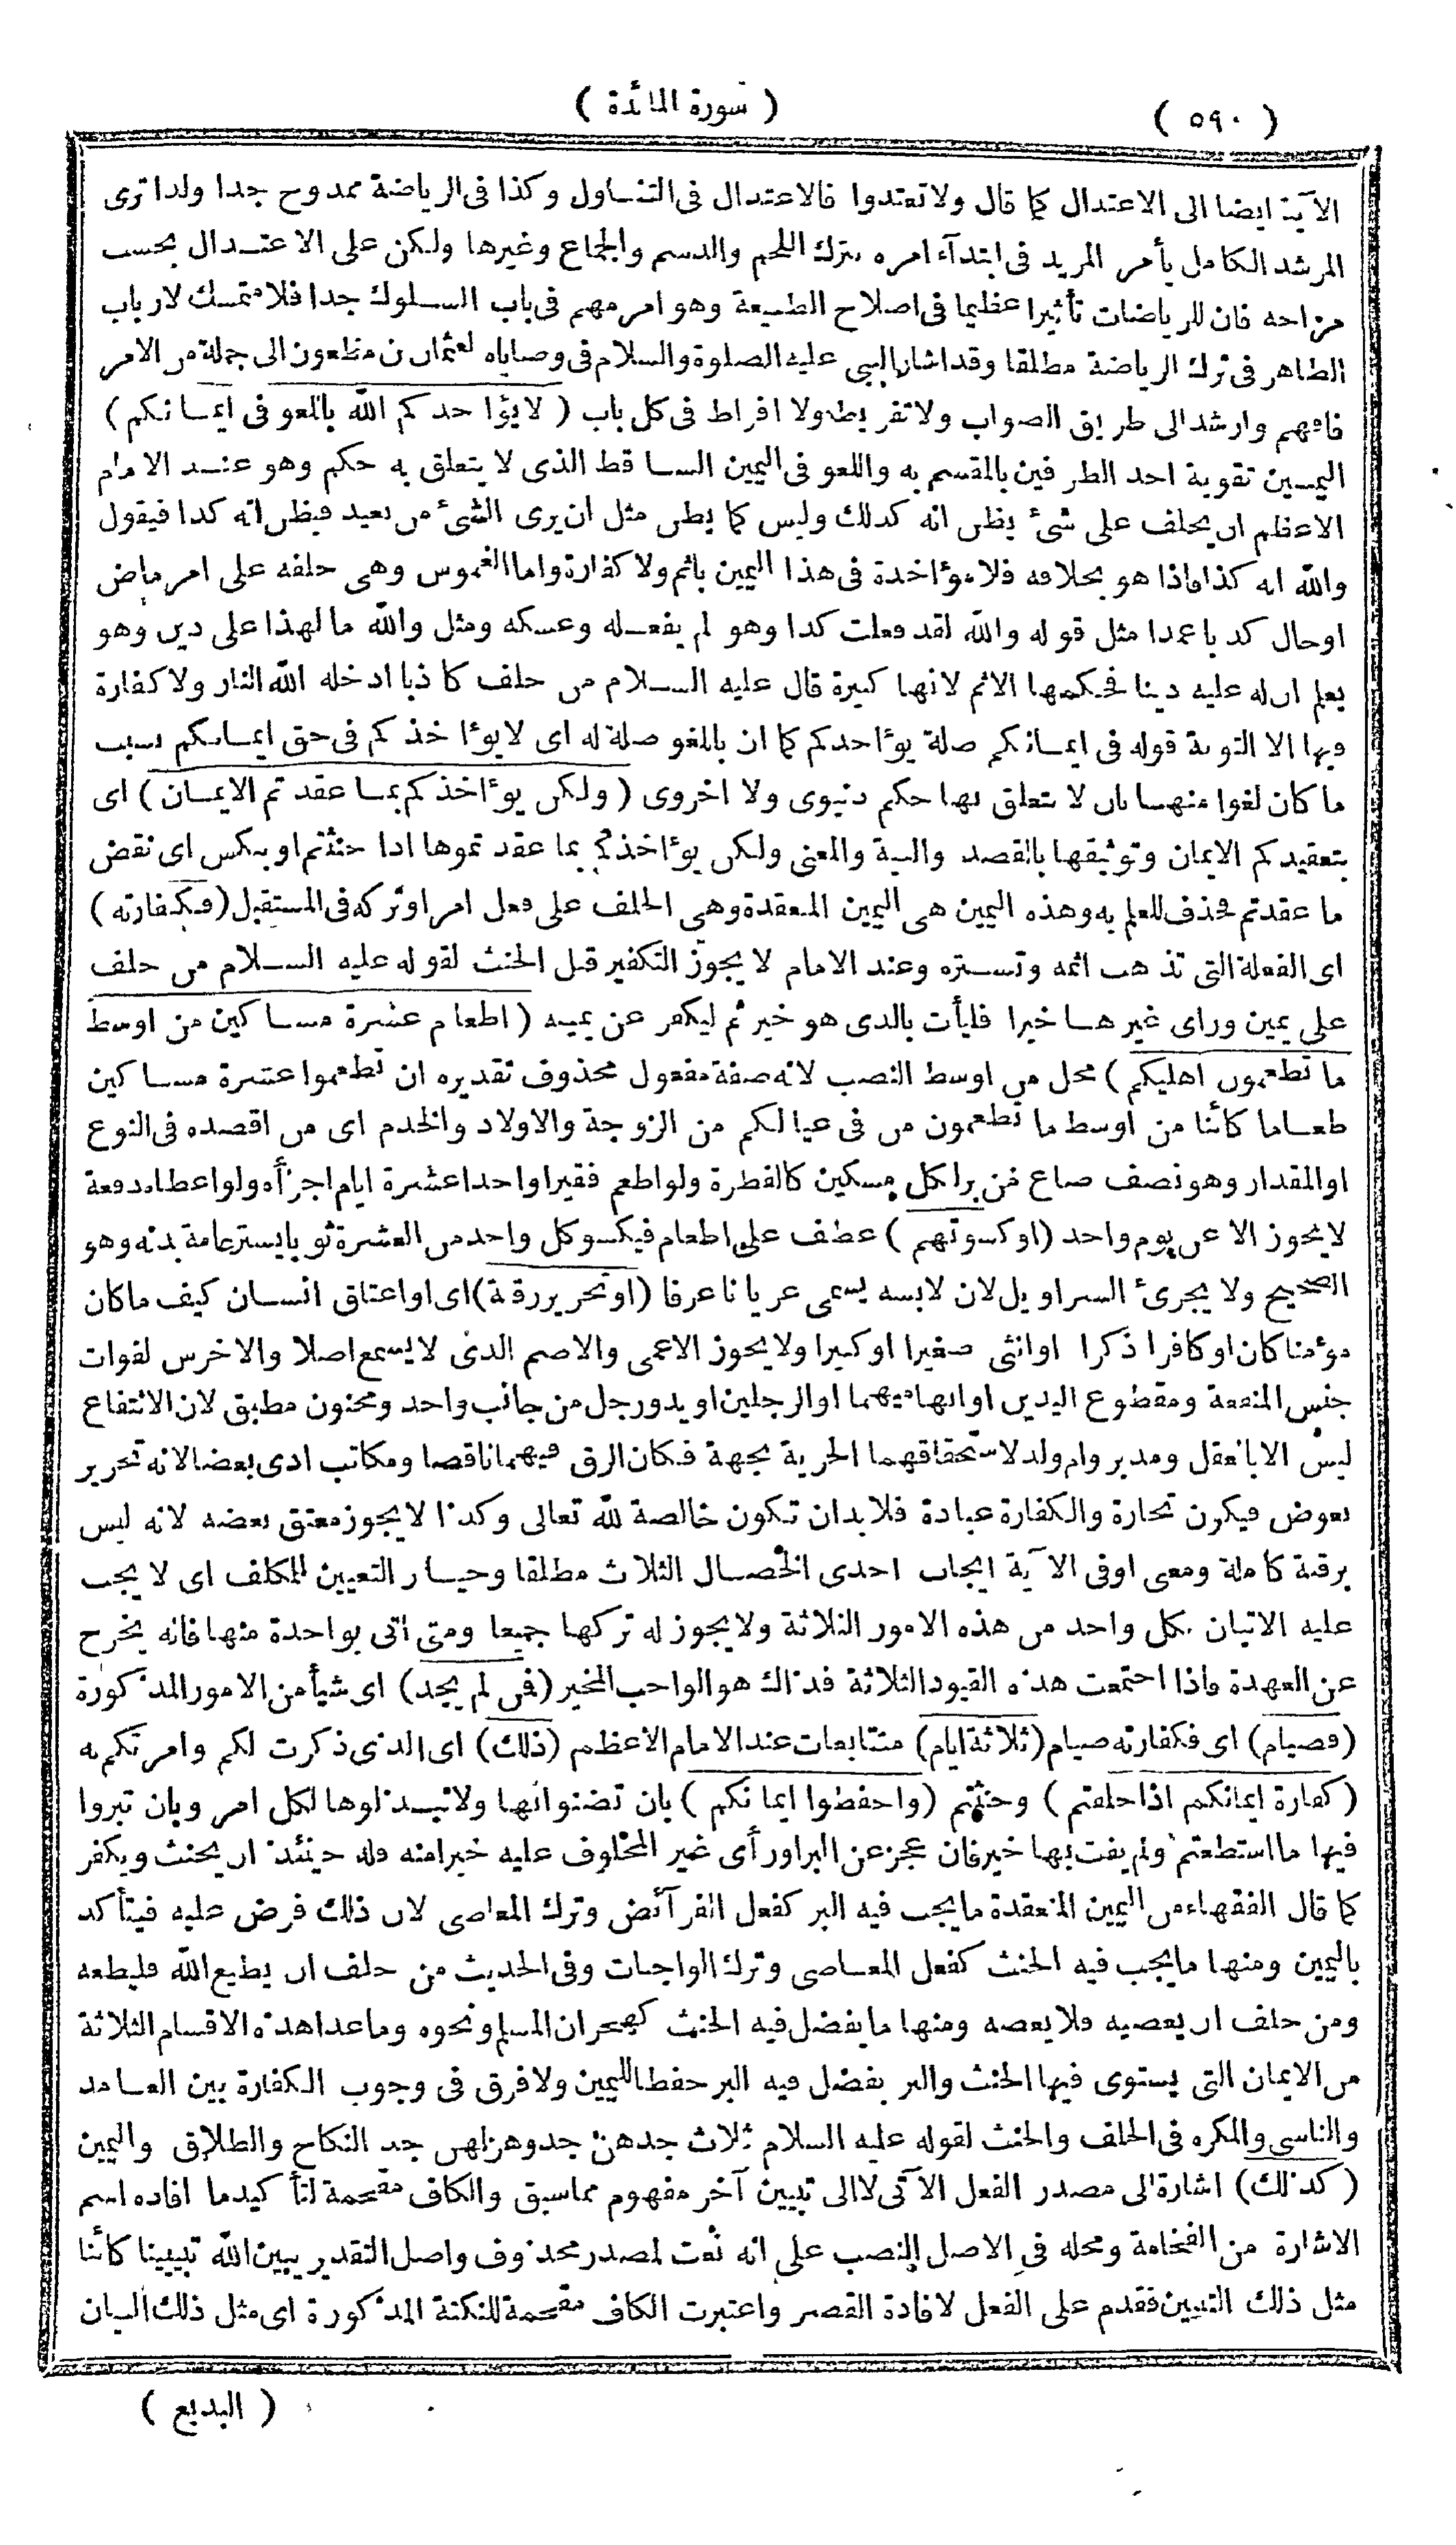 ( ٥٩٠ )
( سورة المائدة )
الآية ايضا الى الاعتدال كما قال ولا تعتدوا فالاعتدال فى التناول وكذا فى الرياضة ممدوح جدا ولذا ترى
المرشد الكامل يأمر المريد فى ابتدآء امره بترك اللحم والدسم والجماع وغيرها ولكن على الاعتدال بحسب
مزاجه فان للرياضات تأثيرا عظيما فى اصلاح الطبيعة وهو امر مهم فى باب السلوك جدا فلا متمسك لارباب
الظاهر فى ترك الرياضة مطلقا وقد اشار النبى عليه الصلوة والسلام فى وصاياه لعثمان بن مظعون الى جملة من الامر
فافهم وارشد الى طريق الصواب ولا تفريط ولا افراط فى كل باب ( لا يؤاخذكم الله باللغو فى ايمانكم )
اليمين تقوية احد الطرفين بالمقسم به واللغو فى اليمين الساقط الذى لا يتعلق به حكم وهو عند الامام
الاعظم ان يحلف على شئ يظن انه كذلك وليس كما يظن مثل ان يرى الشئ من بعيد فيظن انه كذا فيقول
والله انه كذا فاذا هو بخلافه فلا مؤاخذة فى هذا اليمين باثم ولا كفارة واما الغموس وهى حلفه على امر ماض
او حال كذبا عمدا مثل قوله والله لقد فعلت كذا وهو لم يفعله وعكسه ومثل والله ما لهذا على دين وهو
يعلم ان له عليه دينا فحكمها الاثم لانها كبيرة قال عليه السلام من حلف كاذبا ادخله الله النار ولا كفارة
فيها الا التوبة قوله فى ايمانكم صلة يؤاخذكم كما ان باللغو صلة له اى لا يؤاخذكم فى حق ايمانكم بسبب
ما كان لغوا منها بان لا يتعلق بها حكم دنيوى ولا اخروى ( ولكن يؤاخذكم بما عقدتم الايمان ) اى
بتعقيدكم الايمان وتوثيقها بالقصد والنية والمعنى ولكن يؤاخذكم بما عقدتموها اذا حنثتم او بنكس اى نقض
ما عقدتم فحذف للعلم به وهذه اليمين هى اليمين المنعقدة وهى الحلف على فعل امر او تركه فى المستقبل ( فكفارته )
اى الفعلة التى تذهب اثمه وتستره وعند الامام لا يجوز التكفير قبل الحنث لقوله عليه السلام من حلف
على يمين وراى غيرها خيرا فليأت بالذى هو خير ثم ليكفر عن يمينه ( اطعام عشرة مساكين من اوسط
ما تطعمون اهليكم ) محل من اوسط النصب لانه صفة مفعول محذوف تقديره ان تطعموا عشرة مساكين
طعاما كائنا من اوسط ما تطعمون من فى عيالكم من الزوجة والاولاد والخدم اى من اقصده فى النوع
او المقدار وهو نصف صاع من بر لكل مسكين كالفطرة ولو اطعم فقيرا واحدا عشرة ايام اجزأه ولو اعطاه دفعة
لا يجوز الا عن يوم واحد ( او كسوتهم ) عطف على اطعام فيكسو كل واحد من العشرة ثوبا يستر عامة بدنه وهو
الصحيح ولا يجزئ السراويل لان لابسه يسمى عريانا عرفا ( او تحرير رقبة ) اى او اعتاق انسان كيف ما كان
مؤمنا كان او كافرا ذكرا او انثى صغيرا او كبيرا ولا يجوز الاعمى والاصم الذى لا يسمع اصلا والاخرس لفوات
جنس المنفعة ومقطوع اليدين او ابهاميهما او الرجلين او يد ورجل من جانب واحد ومجنون مطبق لان الانتفاع
ليس الا بالعقل ومدبر وام ولد لاستحقاقهما الحرية بجهة فكان الرق فيهما ناقصا ومكاتب ادى بعضا لانه تحرير
بعوض فيكون تجارة والكفارة عبادة فلا بد ان تكون خالصة لله تعالى وكذا لا يجوز معتق بعضه لانه ليس
برقبة كاملة ومعنى او فى الآية ايجاب احدى الخصال الثلاث مطلقا وخيار التعيين للمكلف اى لا يجب
عليه الاتيان بكل واحد من هذه الامور الثلاثة ولا يجوز له تركها جميعا ومتى اتى بواحدة منها فانه يخرج
عن العهدة فاذا اجتمعت هذه القيود الثلاثة فذاك هو الواجب المخير ( فمن لم يجد ) اى شيأ من الامور المذكورة
( فصيام ) اى فكفارته صيام ( ثلاثة ايام ) متتابعات عند الامام الاعظم ( ذلك ) اى الذى ذكرت لكم وامرتكم به
( كفارة ايمانكم اذا حلفتم ) وحنثتم ( واحفظوا ايمانكم ) بان تضنوا بها ولا تبذلوها لكل امر وبان تبروا
فيها ما استطعتم ولم يفت بها خير فان عجز عن البر او رأى غير المحلوف عليه خيرا منه فله حينئذ ان يحنث ويكفر
كما قال الفقهاء من اليمين المنعقدة ما يجب فيه البر كفعل الفرآئض وترك المعاصى لان ذلك فرض عليه فيتأكد
باليمين ومنها ما يجب فيه الحنث كفعل المعاصى وترك الواجبات وفى الحديث من حلف ان يطيع الله فليطعه
ومن حلف ان يعصيه فلا يعصه ومنها ما يفضل فيه الحنث كهجران المسلم ونحوه وما عدا هذه الاقسام الثلاثة
من الايمان التى يستوى فيها الحنث والبر يفضل فيه البر حفظا لليمين ولا فرق فى وجوب الكفارة بين العامد
والناسى والمكره فى الحلف والحنث لقوله عليه السلام ثلاث جدهن جد وهزلهن جد النكاح والطلاق واليمين
( كذلك ) اشارة الى مصدر الفعل الآتى لا الى تبيين آخر مفهوم مما سبق والكاف مقحمة لتأكيد ما افاده اسم
الاشارة من الفخامة ومحله فى الاصل النصب على انه نعت لمصدر محذوف واصل التقدير يبين الله تبيينا كائنا
مثل ذلك التبيين فقدم على الفعل لافادة القصر واعتبرت الكاف مقحمة للنكتة المذكورة اى مثل ذلك البيان
( البديع )